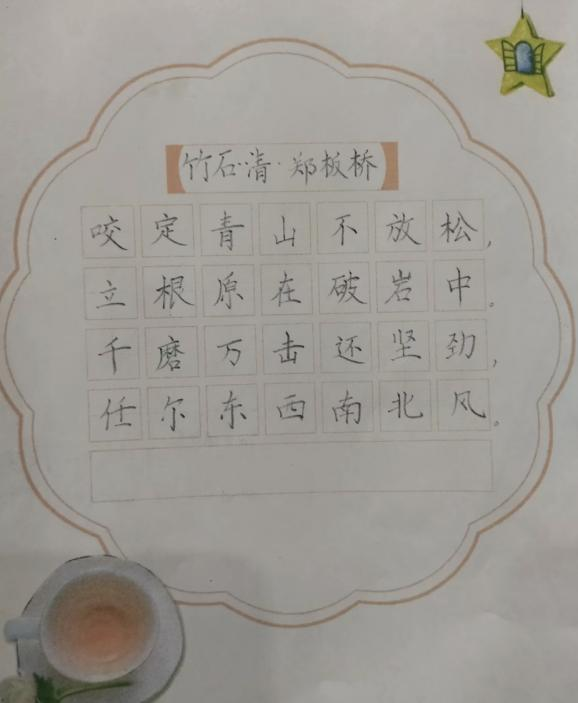 竹石·清·郑板桥
咬定青山不放松，
立根原在破岩中。
千磨万击还坚劲，
任尔东西南北风。